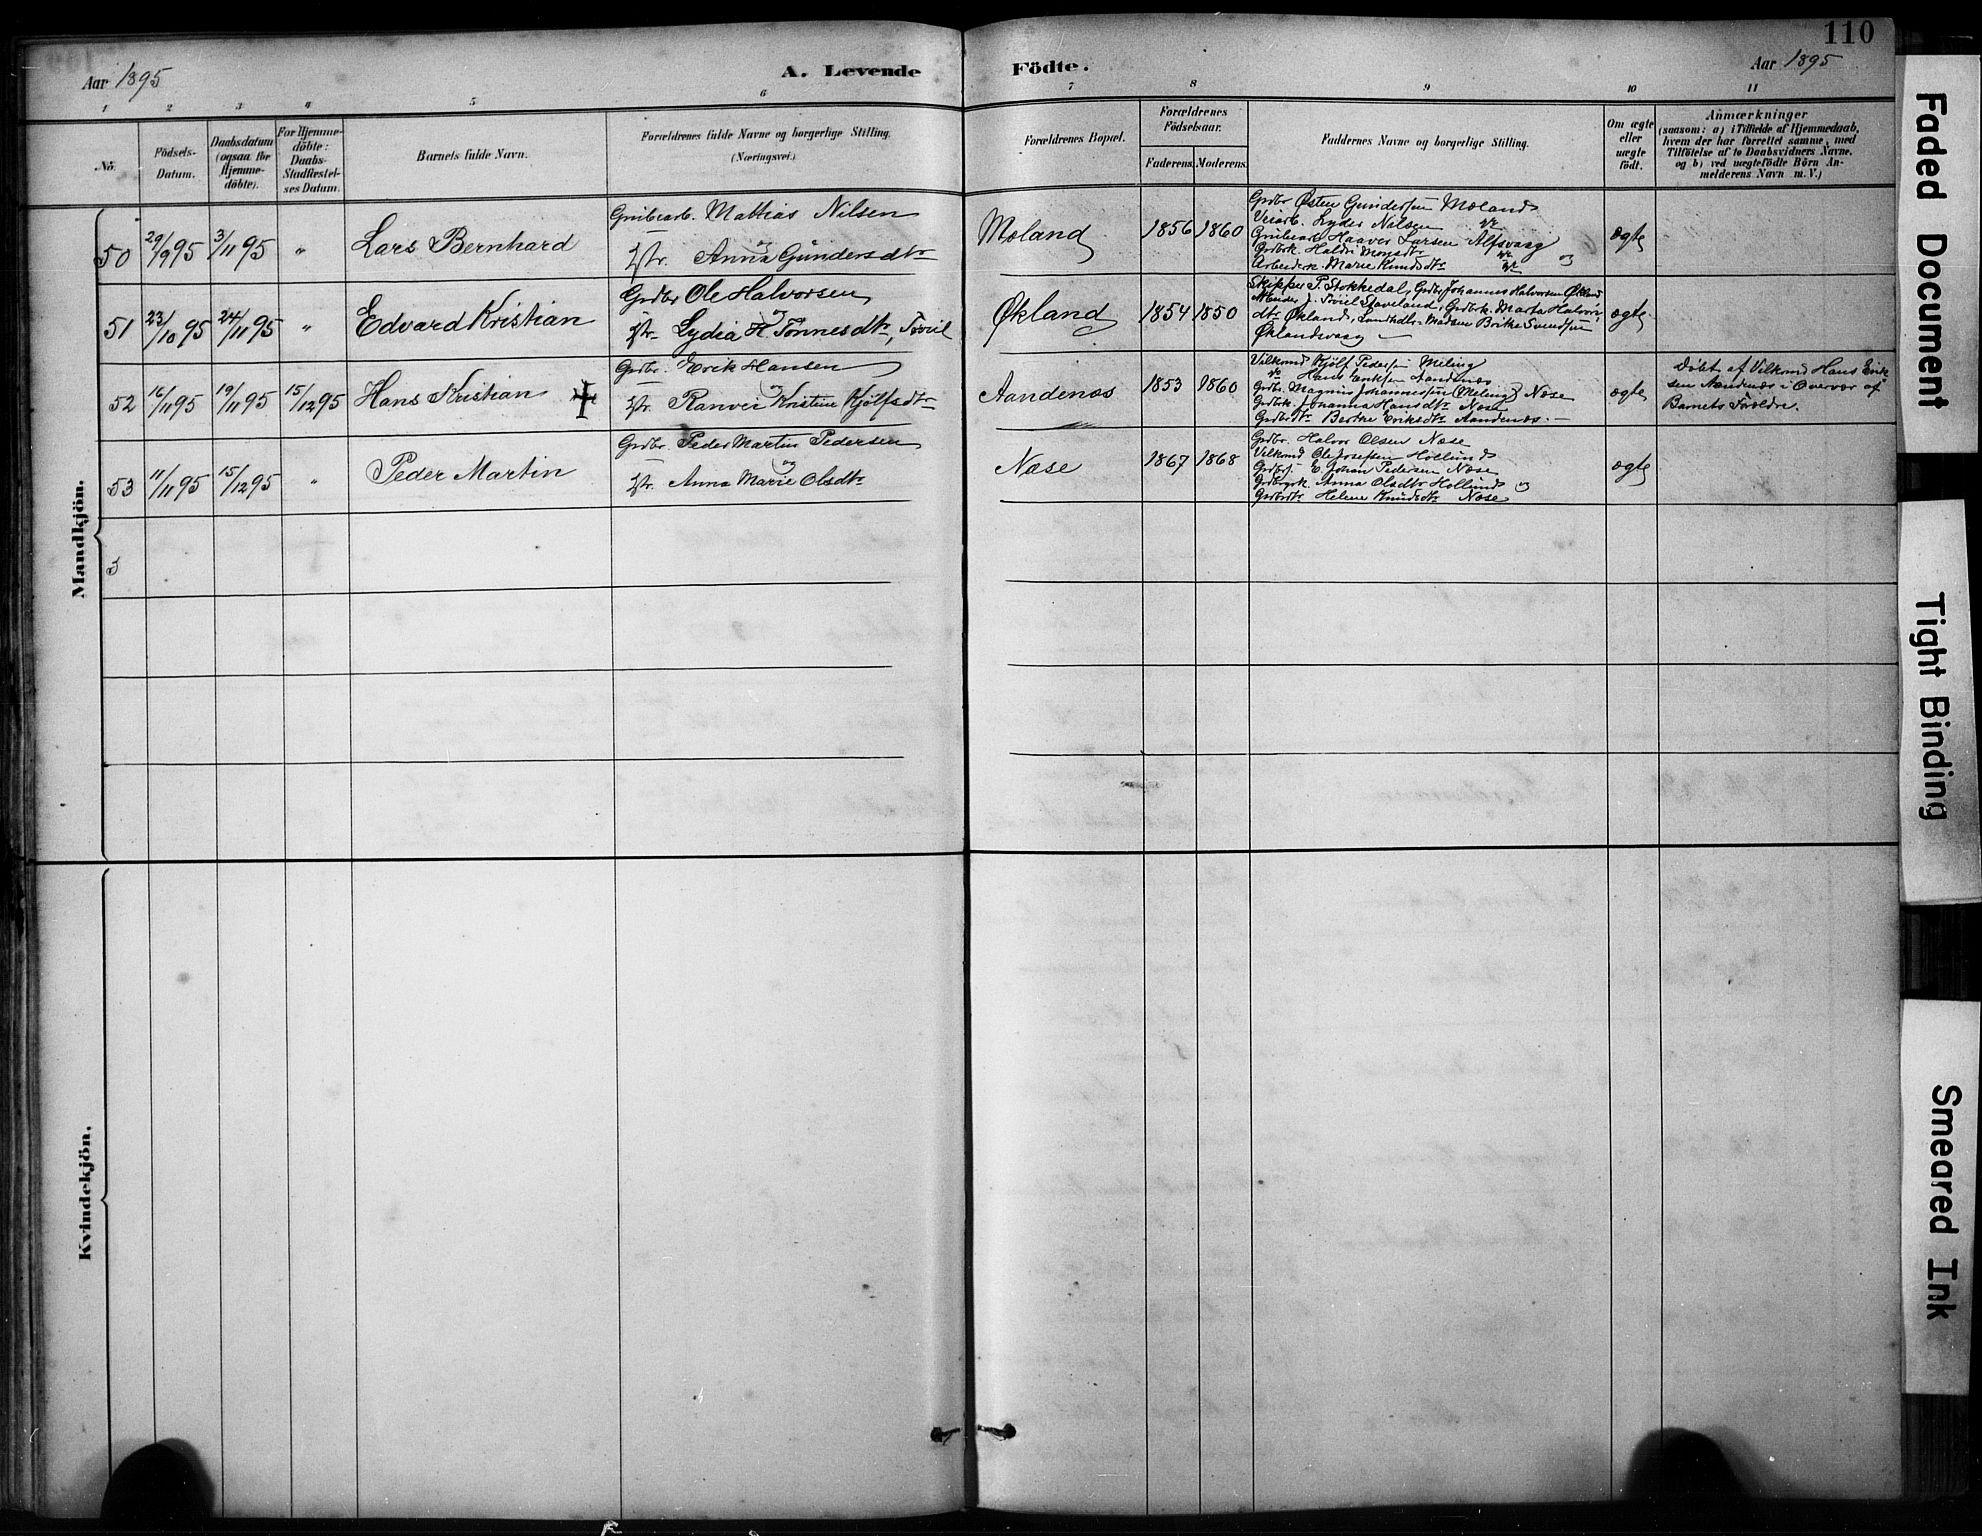 110
Aar 1895
A. Levende
Födte.
Aar 1895
1 2 3 4 5 6 7 8 9 10 11
No.
Födsels-
Datum.
Daabsdatum
(ogsaa for
Hjemme-
döbte).
For Hjemme-
döbte:
Daabs-
Stadfæstel-
ses Datum.
Barnets fulde Navn.
Forældrenes fulde Navne og borgerlige Stilling.
(Næringsvei.)
Forældrenes Bopæl.
Forældrenes
Födselsaar.
Faderens. Moderens.
Faddernes Navne og borgerlige Stilling.
Om ægte
eller
uægte
født.
Anmærkninger
(saasom: a) i Tilfælde af Hjemmedaab,
hvem der har forrettet samme, med
Tilföielse af to Daabsvidners Navne,
og b) ved uægtefödte Börn An-
melderens Navn m. V.)
Mandkjön.
50 29/9 95 3/11 95 " Lars Bernhard
Grubearb. Mattias Nilsen
og
Hstr. Anna Gundersdtr
Moland 1856 1860
Grdbr Østen Gundersen Mæland
Veiarb. Lyder Nilsen
Grubearb Haaver Larsen Alfsvaag
Grdbrk. Haldis Monsdtr
Arbeiderk. Marie Knudsdtr
ægte
51 23/10 95 24/11 95 " Edvard Kristian
Grdbr Ole Halvorsen
og
Hstr Lydia H. Tønnesdtr,
Økland 1854 1850
Skipper P. Stokkedal, Grdbr Johannes Halvorsen Økland,
Staveland, Grdbrk. Marta Halvors-
dtr Økland, Landhdlr. Madame Berthe Svendsen
Øklandsvaag
ægte
52 16/11 95 19/11 95 15/12 95 Hans Kristian
Grdbr. Erik Hansen
og
Hstr. Ranvei Kristine Kjølfsdtr
Aandenæs 1853 1860
Vilkmd Kjølf Pedersen Meling
Hans Eriksen Aandenæs
Grdbr. Magnus Johannessen (Meling) Næse
Grdbrk. Johanna Hansdtr Næse
Grdbrdtr Berthe Eriksdtr Aandenæs.
ægte
Døbt af Vilkmd Hans Erik-
sen Aandenæs i Overvær af
Barnets Foreldre.
53 11/11 95 15/12 95 " Peder Martin
Grdbr. Peder Martin Pedersen
og
Hstr. Anna Marie Olsdtr
Næse 1867 1868
Grdbr. Halvor Olsen Næse
Vilkmd Ole Josefsen Hollund
Grdbrs. E. Johan Pedersen Næse
Grdbrk. Anna Olsdtr Hollund og
Grdbrdtr. Helene Knudsdtr Næse
ægte
5
Kvindekjön.
Faded Document
Tight Binding
Smeared Ink